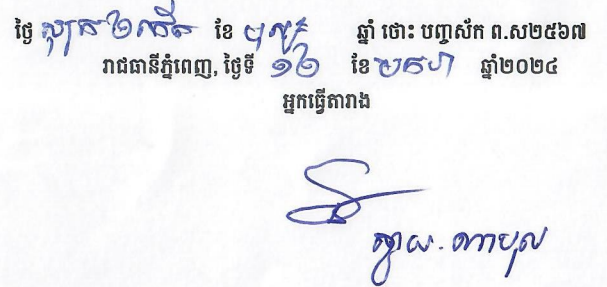 ថ្ងៃ សុក្រ ២កើត ខែ បុស្ស ឆ្នាំ ថោះ បញ្ចស័ក ព.ស២៥៦៧
រាជធានីភ្នំពេញ, ថ្ងៃទី ១២ ខែ មករា ឆ្នាំ២០២៤
អ្នកធ្វើតារាង
ស្វាយ. ណាបុល